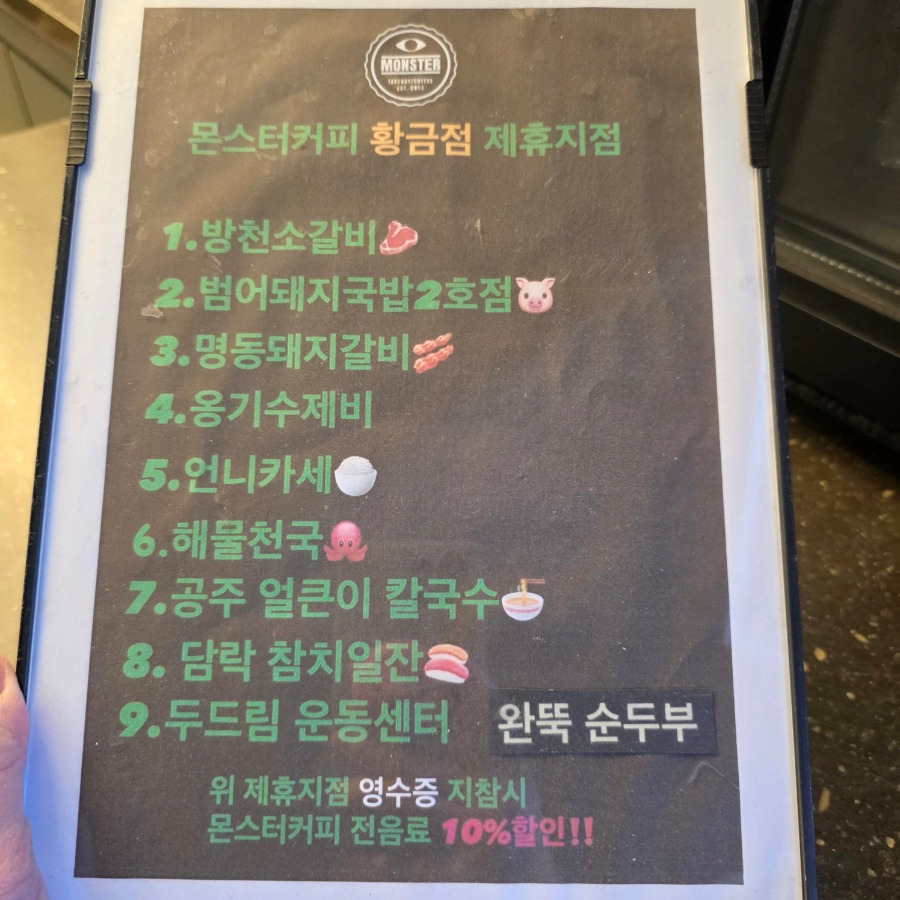 MONSTER
몬스터커피 황금점 제휴지점
1.방천소갈비
2.범어돼지국밥2호점
3.명동돼지갈비
4.옹기수제비
5.언니카세
6.해물천국
7.공주 얼큰이 칼국수
8. 담락 참치일잔
9.두드림 운동센터
완뚝 순두부
위 제휴지점 영수증 지참시
몬스터커피 전음료 10%할인!!